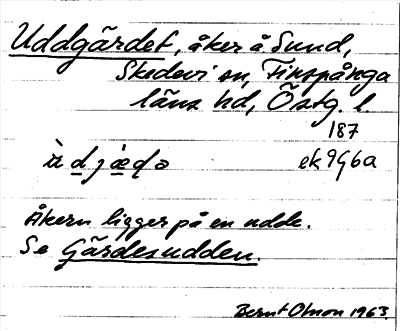 Uddgärdet, åker å Sund,
Skedevi sn, Finspånga
läns hd, Östg. l.
187
ek 9G6a
Åkern ligger på en udde.
Se Gärdesudden.
Bernt Olson 1963